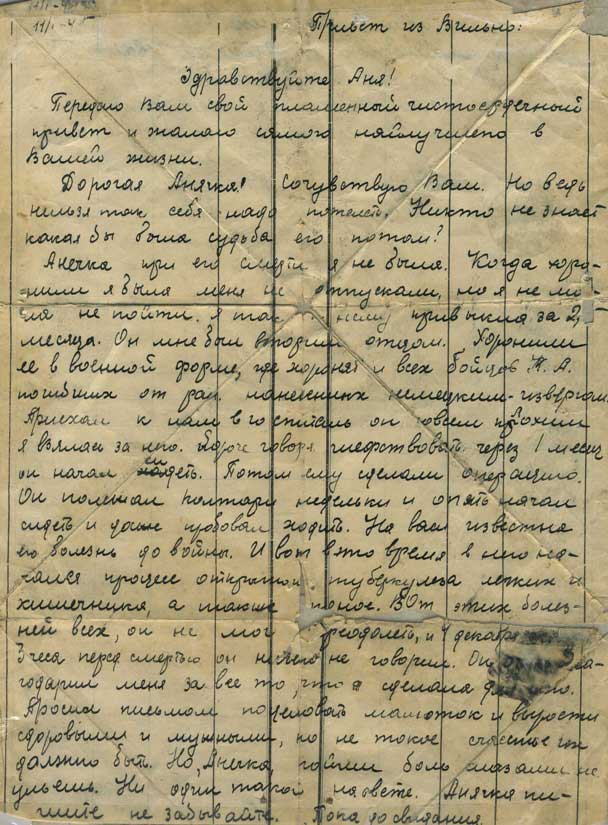 11/I-45
Привет из Вильно:
Здравствуйте Аня!
Передаю Вам свой пламенный чистосердечный
привет и желаю самого найлучшего в
Вашей жизни.
Дорогая Анячка! Сочувствую Вам. Но ведь
нельзя так себя надо пожалеть. Никто не знает
какая бы была судьба его потом?
Анечка при его смерти я не была. Когда хоро-
нили я была меня не отпускали, но я не мо-
гла не пойти. я так к нему привыкла за 2,5
месяца. Он мне был вторым отцом. Хоронили
ее в военной форме, где хоронят и всех бойцов К. А.
погибших от ран нанесенных немецким-извергом.
Приехал к нам в госпиталь он совсем плохим
я взялась за него. Короче говоря шефствовать через 1 месяц
он начал сидеть. Потом ему сделали операцию.
Он полежал полтары недельки и опять начал
сидеть и даже пробовал ходить. Но вам известна
его болезнь до войны. И вот в это время в него на-
чался процесс открытой туберкулеза легких и
кишечника, а также понос. В От этих болез-
ней всех, он не мог преодолеть, и 4 декабря
3 часа перед смертью он ничего не говорил. Он
годарил меня за все то, что я сделала для него.
Просил письмом поцеловать малюток и вырости
здоровыми и умными, но не такое счастье
должно быть. Но, Анечка, боль слазами не
уймешь. Ни один такой на свете. Анячка пи-
шите не забывайте. Пока до свидания.